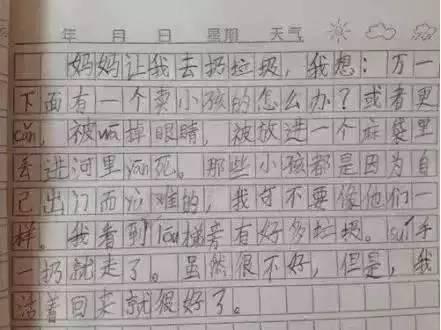 年 月 日 星期 天气
妈妈让我去扔垃圾，我想：万一
下面有一个卖小孩的怎么办？或者更
cǎn，被wā掉眼睛，被放进一个麻袋里
丢进河里yān死。那些小孩都是因为自
己出门而yù难的，我可不要像他们一
样。我看到lóu梯旁有好多垃圾。suí手
一扔就走了。虽然很不好，但是，我
活着回来就很好了。